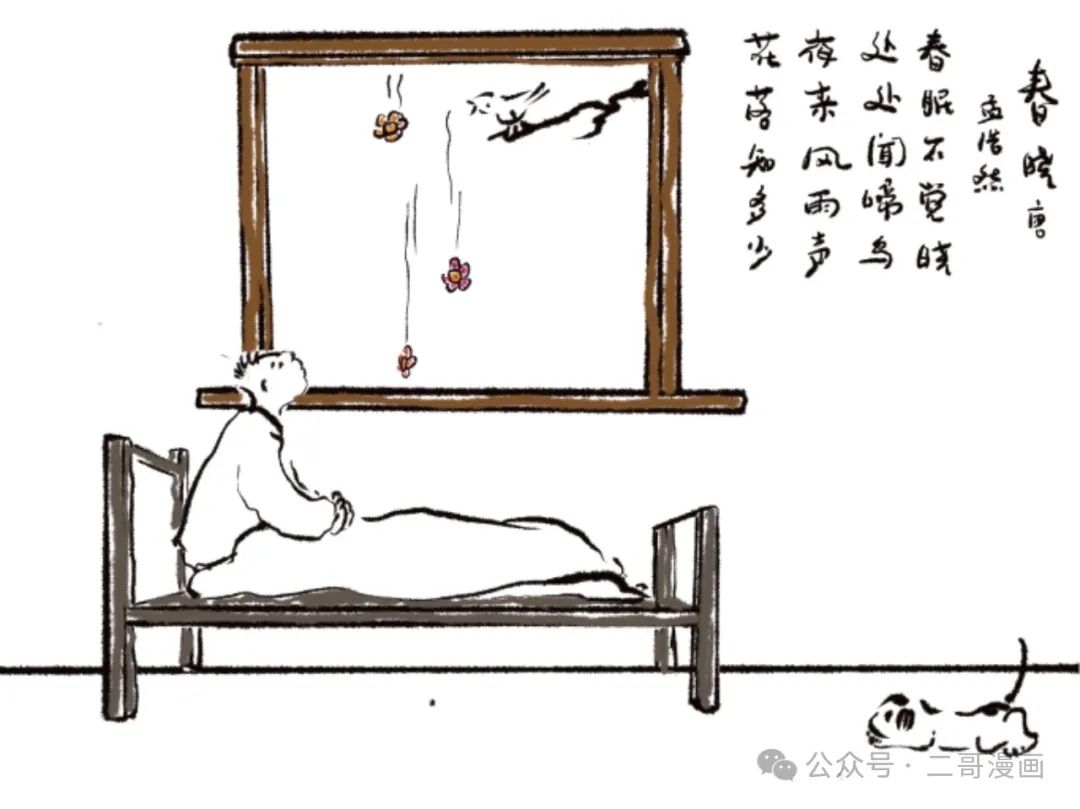 春晓 唐
孟浩然
春眠不觉晓
处处闻啼鸟
夜来风雨声
花落知多少
公众号·二哥漫画